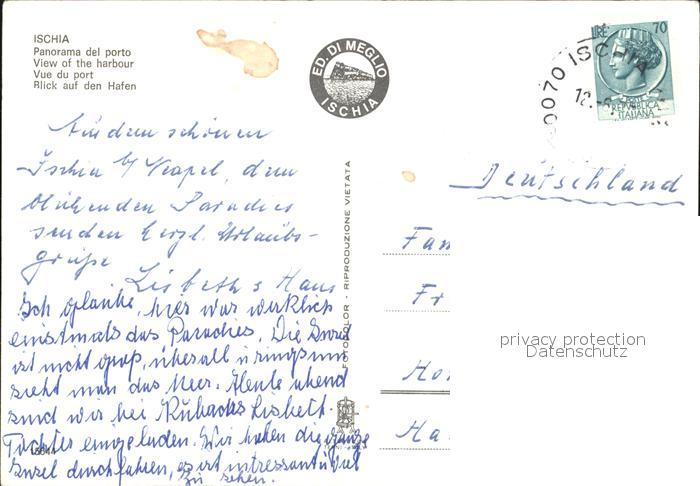 ISCHIA
Panorama del porto
View of the harbour
Vue du port
Blick auf den Hafen
ED. DI MEGLIO
ISCHIA
LIRE 70
REPVBBLICA
ITALIANA
80070 ISCHIA
12.-6.
Aus dem schönen
Ischia b/ Neapel, dem
blühenden Paradies
senden herzl. Urlaubs-
grüße
Lisbeth & Hans
Ich glaube, hier war wirklich
einstmals das Paradies. Die Insel
ist nicht groß, überall u. rings um
sieht man das Meer. Heute abend
sind wir bei Lisbeth.
Tochter eingeladen. Wir haben die ganze
Insel durchfahren, es ist intressant u. viel
zu sehen.
FOTOCOLOR - RIPRODUZIONE VIETATA
Deutschland
Fam
Fr
Ho
Ha
privacy protection
Datenschutz